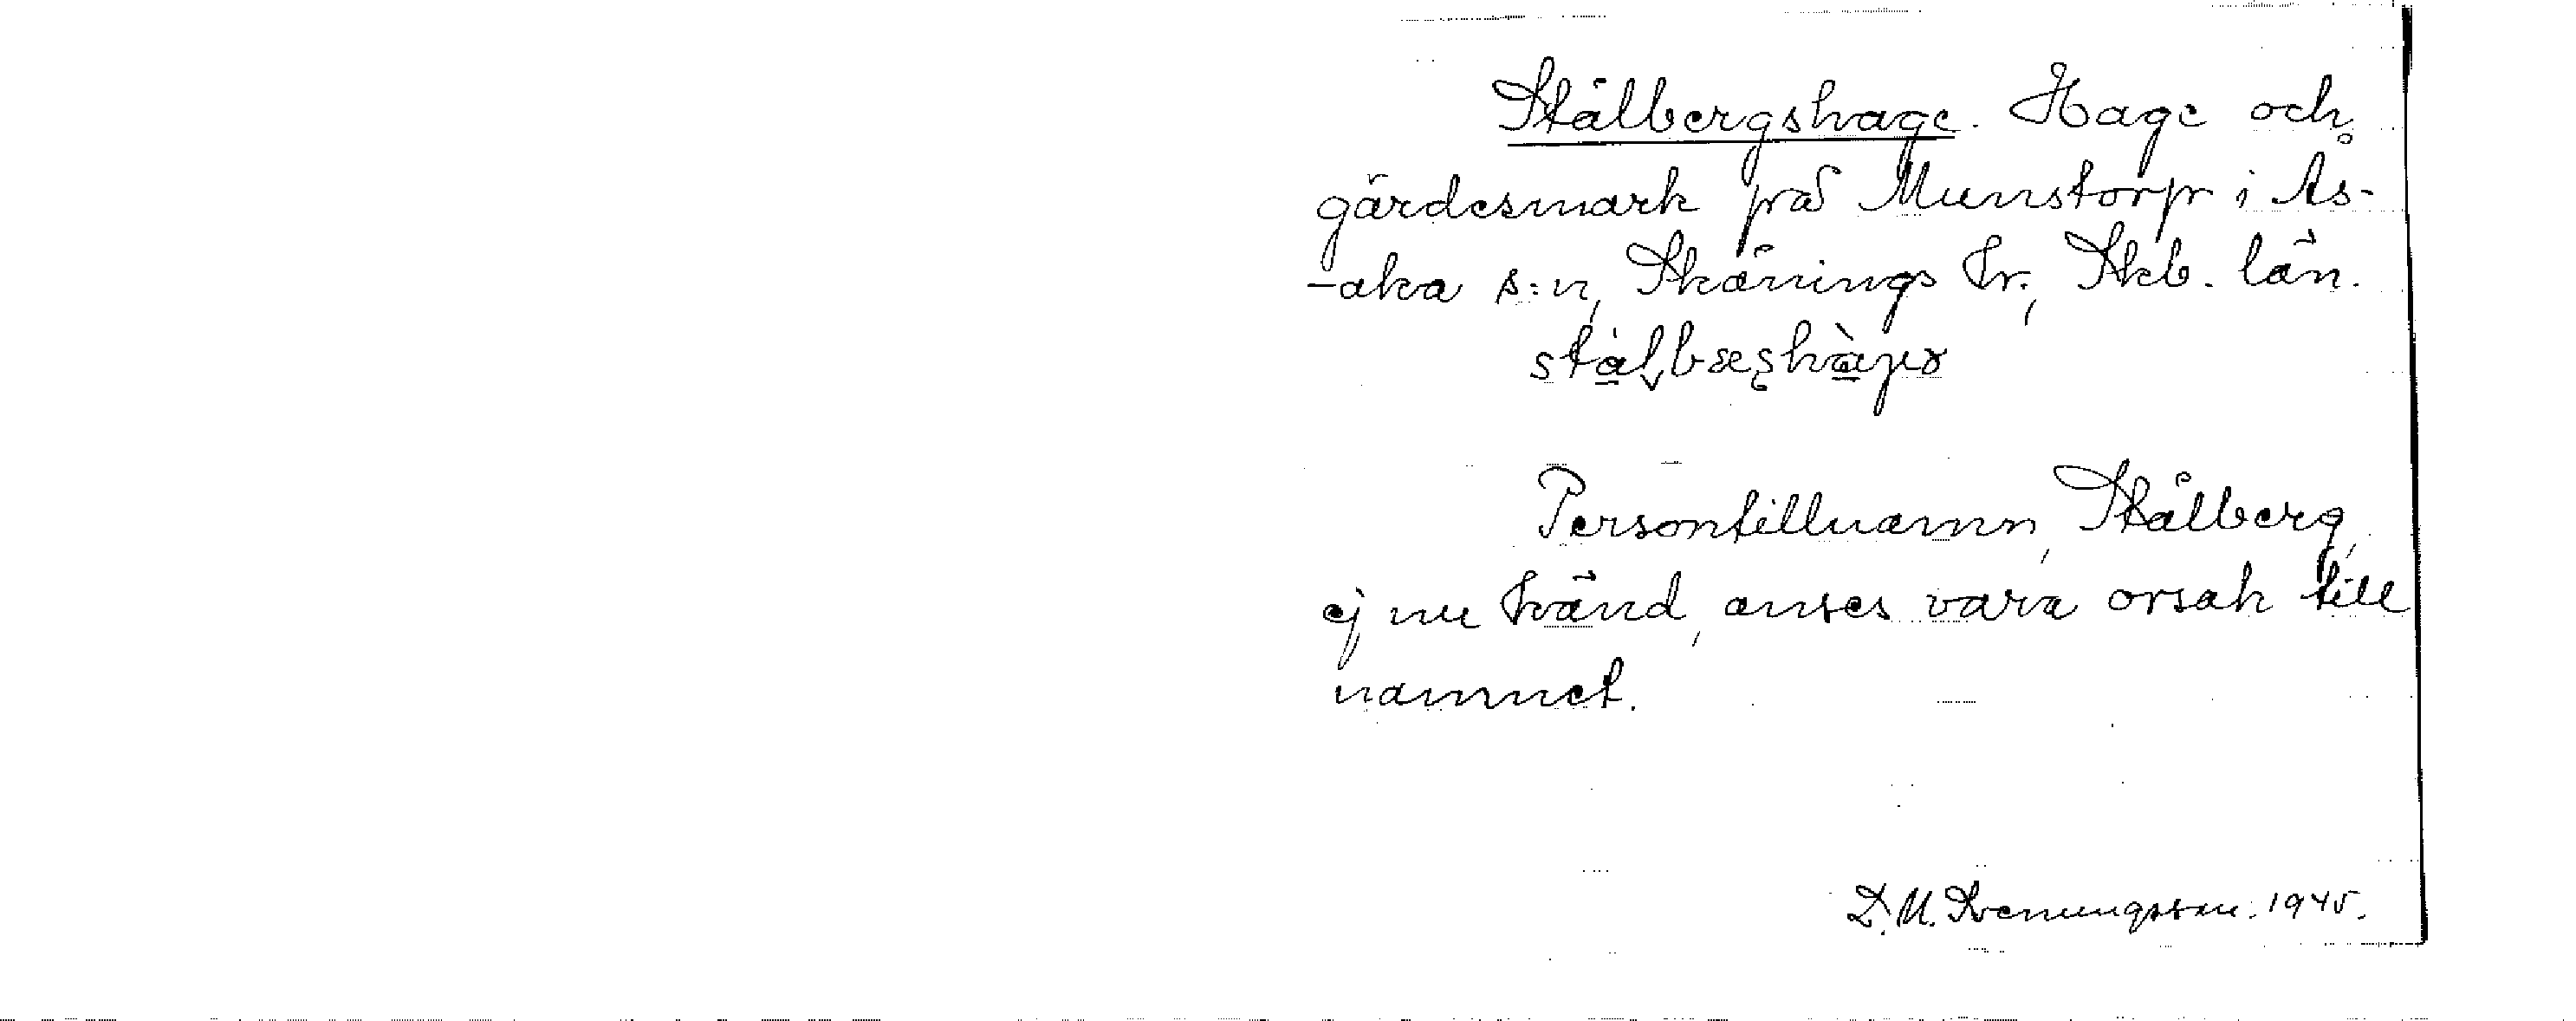 Stålbergshage. Hage och
gärdesmark på Munstorp i Ås-
-aka s:n, Skånings hr., Skb. län.
Persontillnamn, Stålberg,
ej nu känd, anses vara orsak till
namnet.
D. M. 1945.